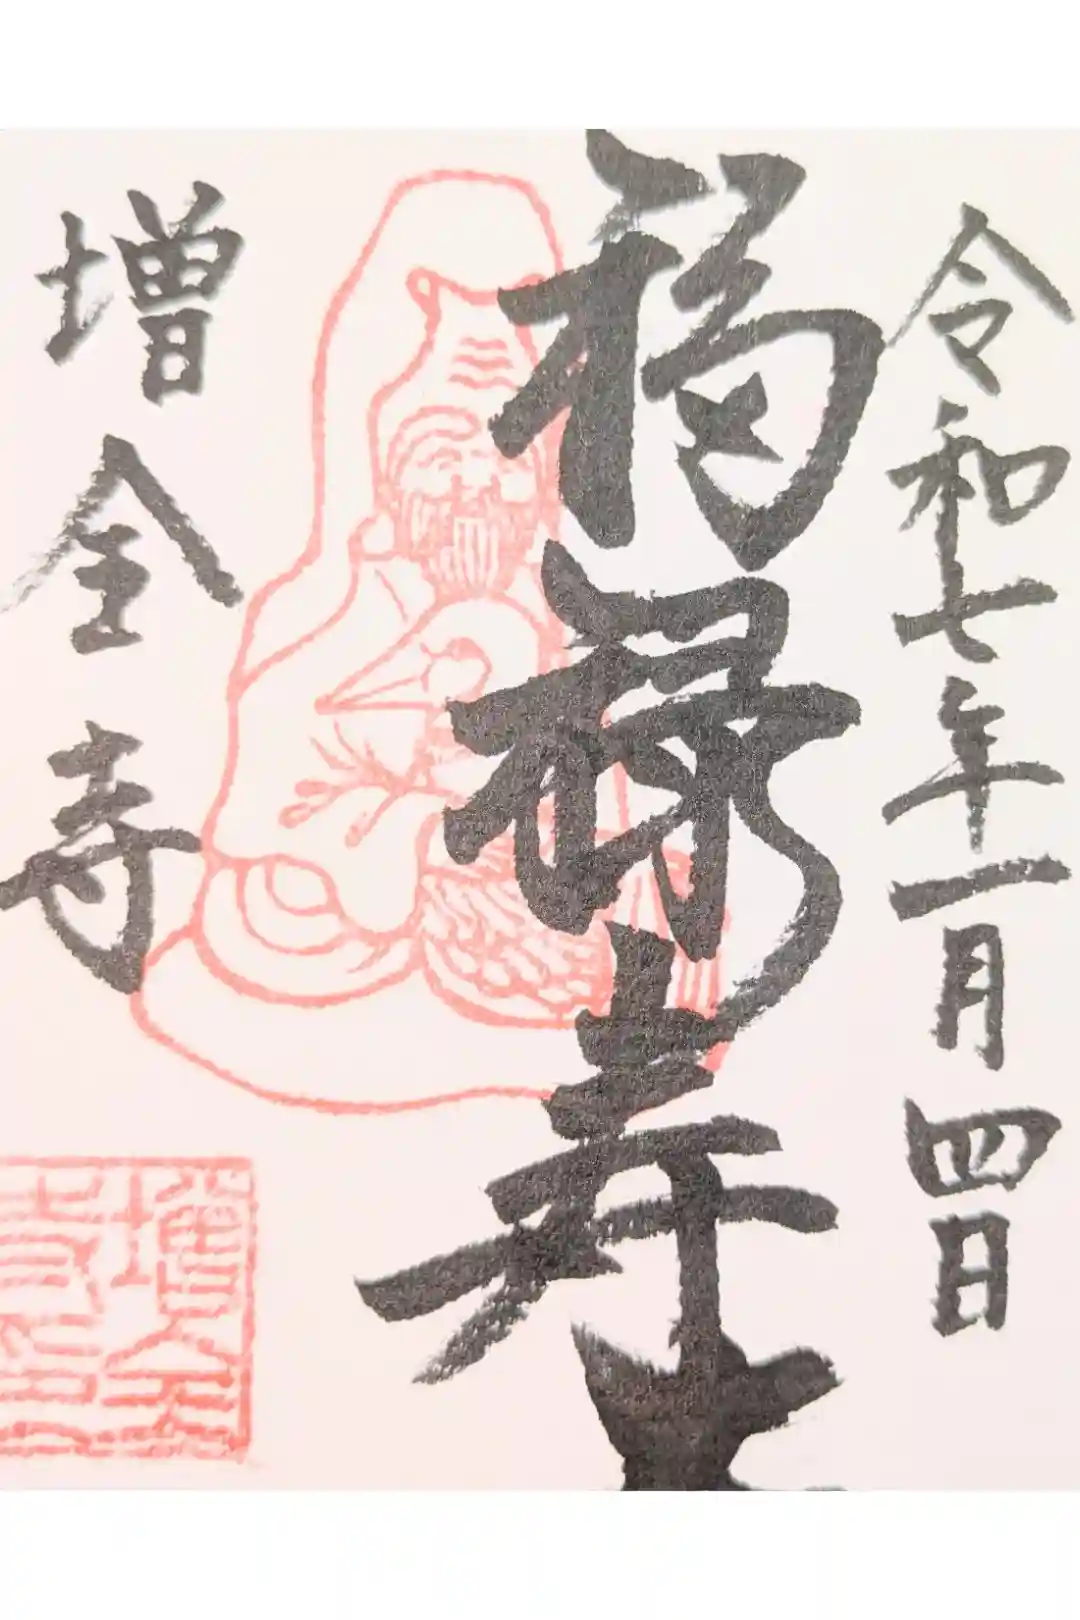 令和七年一月四日
福禄寿
増全寺
増全